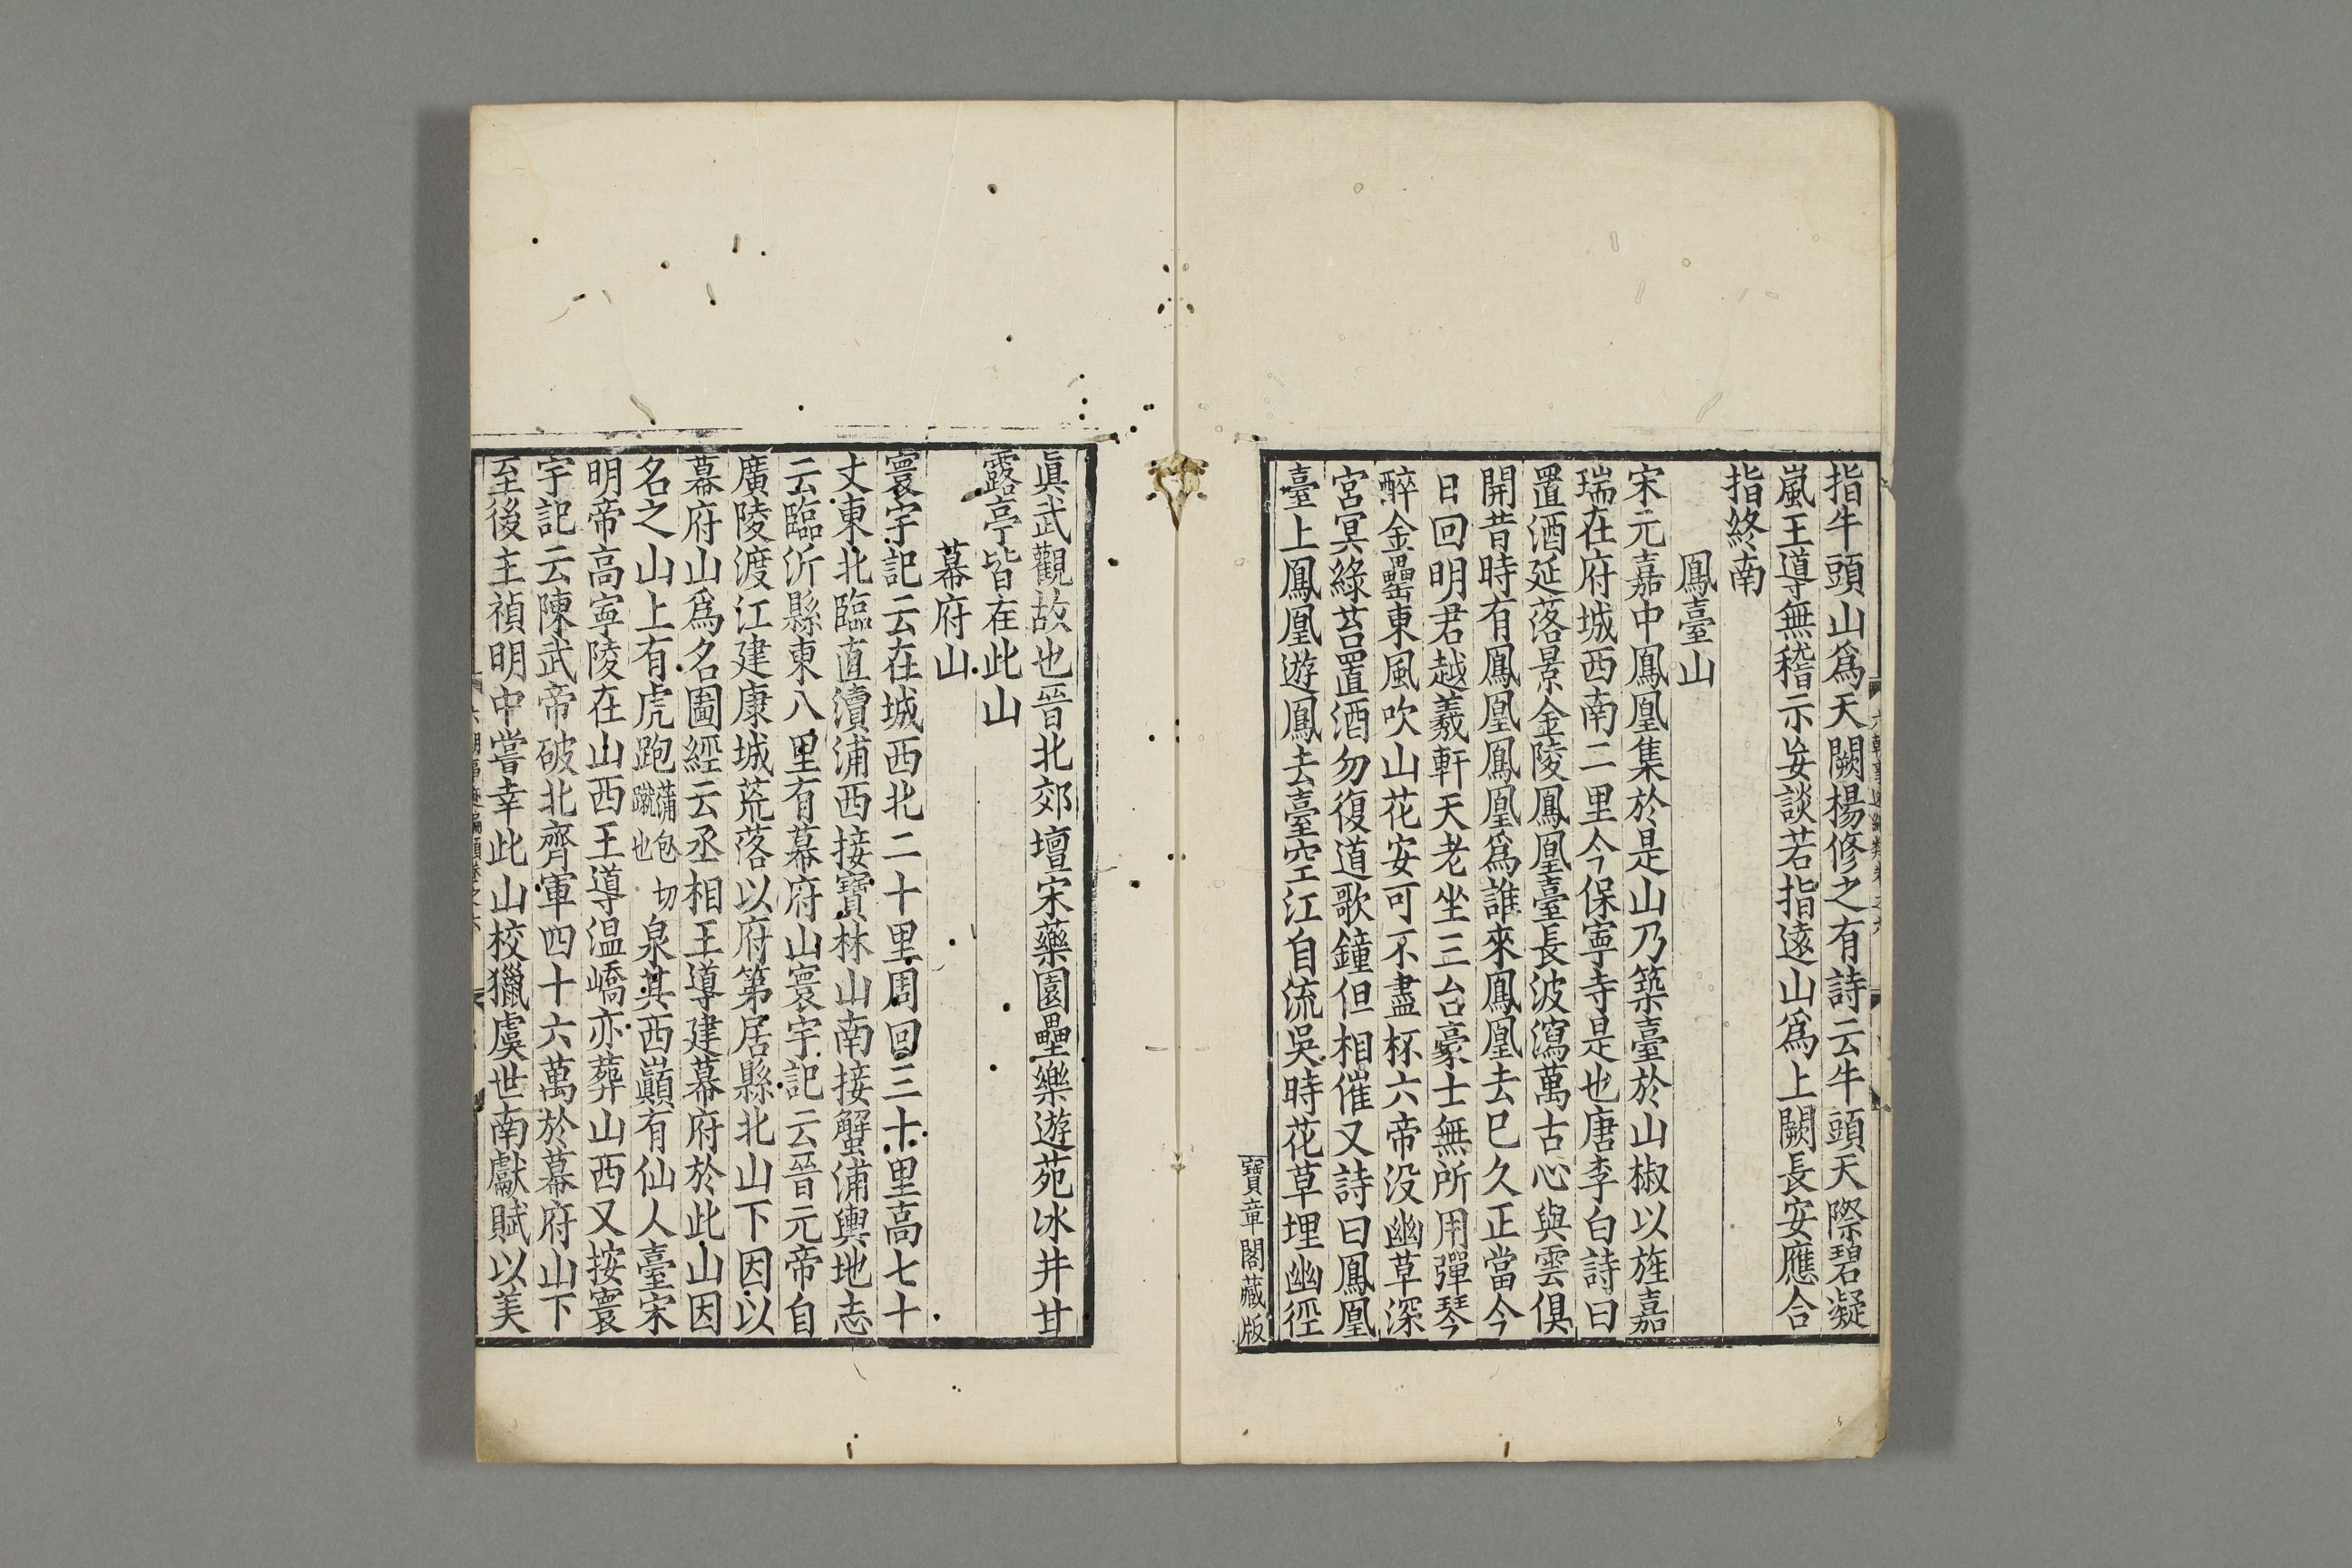 指牛頭山爲天闕楊修之有詩云牛頭天際碧凝
嵐王導無稽示妄談若指遠山爲上闕長安應合
指終南
鳳臺山
宋元嘉中鳳凰集於是山乃築臺於山椒以旌嘉
瑞在府城西南二里今保寧寺是也唐李白詩曰
置酒延落景金陵鳳凰臺長波瀉萬古心與雲俱
開昔時有鳳凰鳳凰爲誰來鳳凰去已久正當今
日回明君越羲軒天老坐三台豪士無所用彈琴
醉金罍東風吹山花安可不盡杯六帝没幽草深
宮冥綠苔置酒勿復道歌鐘但相催又詩曰鳳凰
臺上鳳凰遊鳳去臺空江自流吳時花草埋幽徑
寶章閣藏版
眞武觀故也晉北郊壇宋藥園壘樂遊苑冰井甘
露亭皆在此山
幕府山
寰宇記云在城西北二十里周回三十里高七十
丈東北臨直瀆浦西接寶林山南接蟹浦輿地志
云臨沂縣東八里有幕府山寰宇記云晉元帝自
廣陵渡江建康城荒落以府第居縣北山下因以
幕府山爲名圖經云丞相王導建幕府於此山因
名之山上有虎跑蒲包切蹴也泉其西巔有仙人臺宋
明帝高寧陵在山西王導温嶠亦葬山西又按寰
宇記云陳武帝破北齊軍四十六萬於幕府山下
至後主禎明中嘗幸此山校獵虞世南獻賦以美